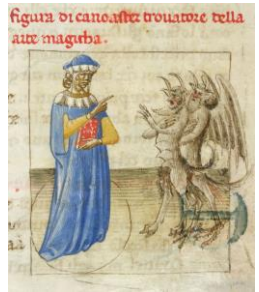 figura di canoaster trouatore della
arte magicha.